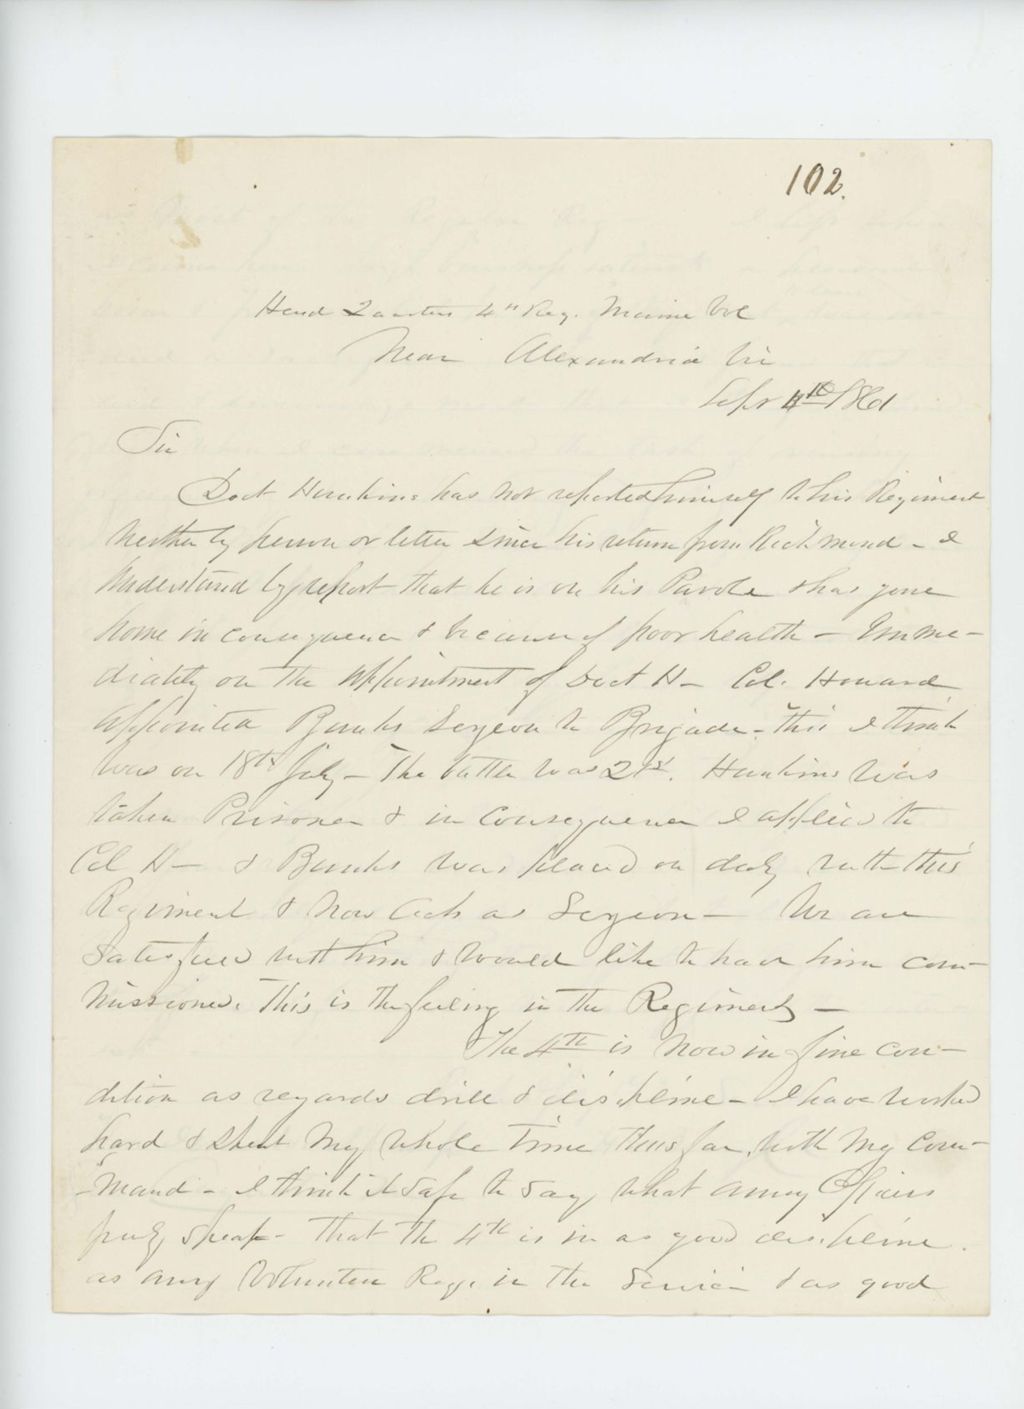 102.
Head Quarters 4th Reg. Maine Vol
Near Alexandria Va
Sept 4th 1861
Sir
Doct Hawkins has not reported himself to his Regiment
neither by person or letter since his return from Richmond – I
understand by report that he is on his Parole & has gone
home in consequence & because of poor health – Imme-
diately on the appointment of Doct H– Col. Howard
appointed Banks Sergeon to Brigade – this I think
was on 18th July – The battle was 21st. Hawkins was
taken Prisoner & in consequence I applied to
Col H– & Banks was placed on duty with this
Regiment & now acts as Sergeon – We are
satisfied with him & would like to have him com-
missioned. This is the feeling in the Regiment –
The 4th is now in fine con-
dition as regards drill & discipline – I have worked
hard & spent my whole time thus far, with my com-
-mand – I think it safe to say what army Officers
freely speak – that the 4th is in as good discipline
as any Volunteer Reg. in the Service & as good